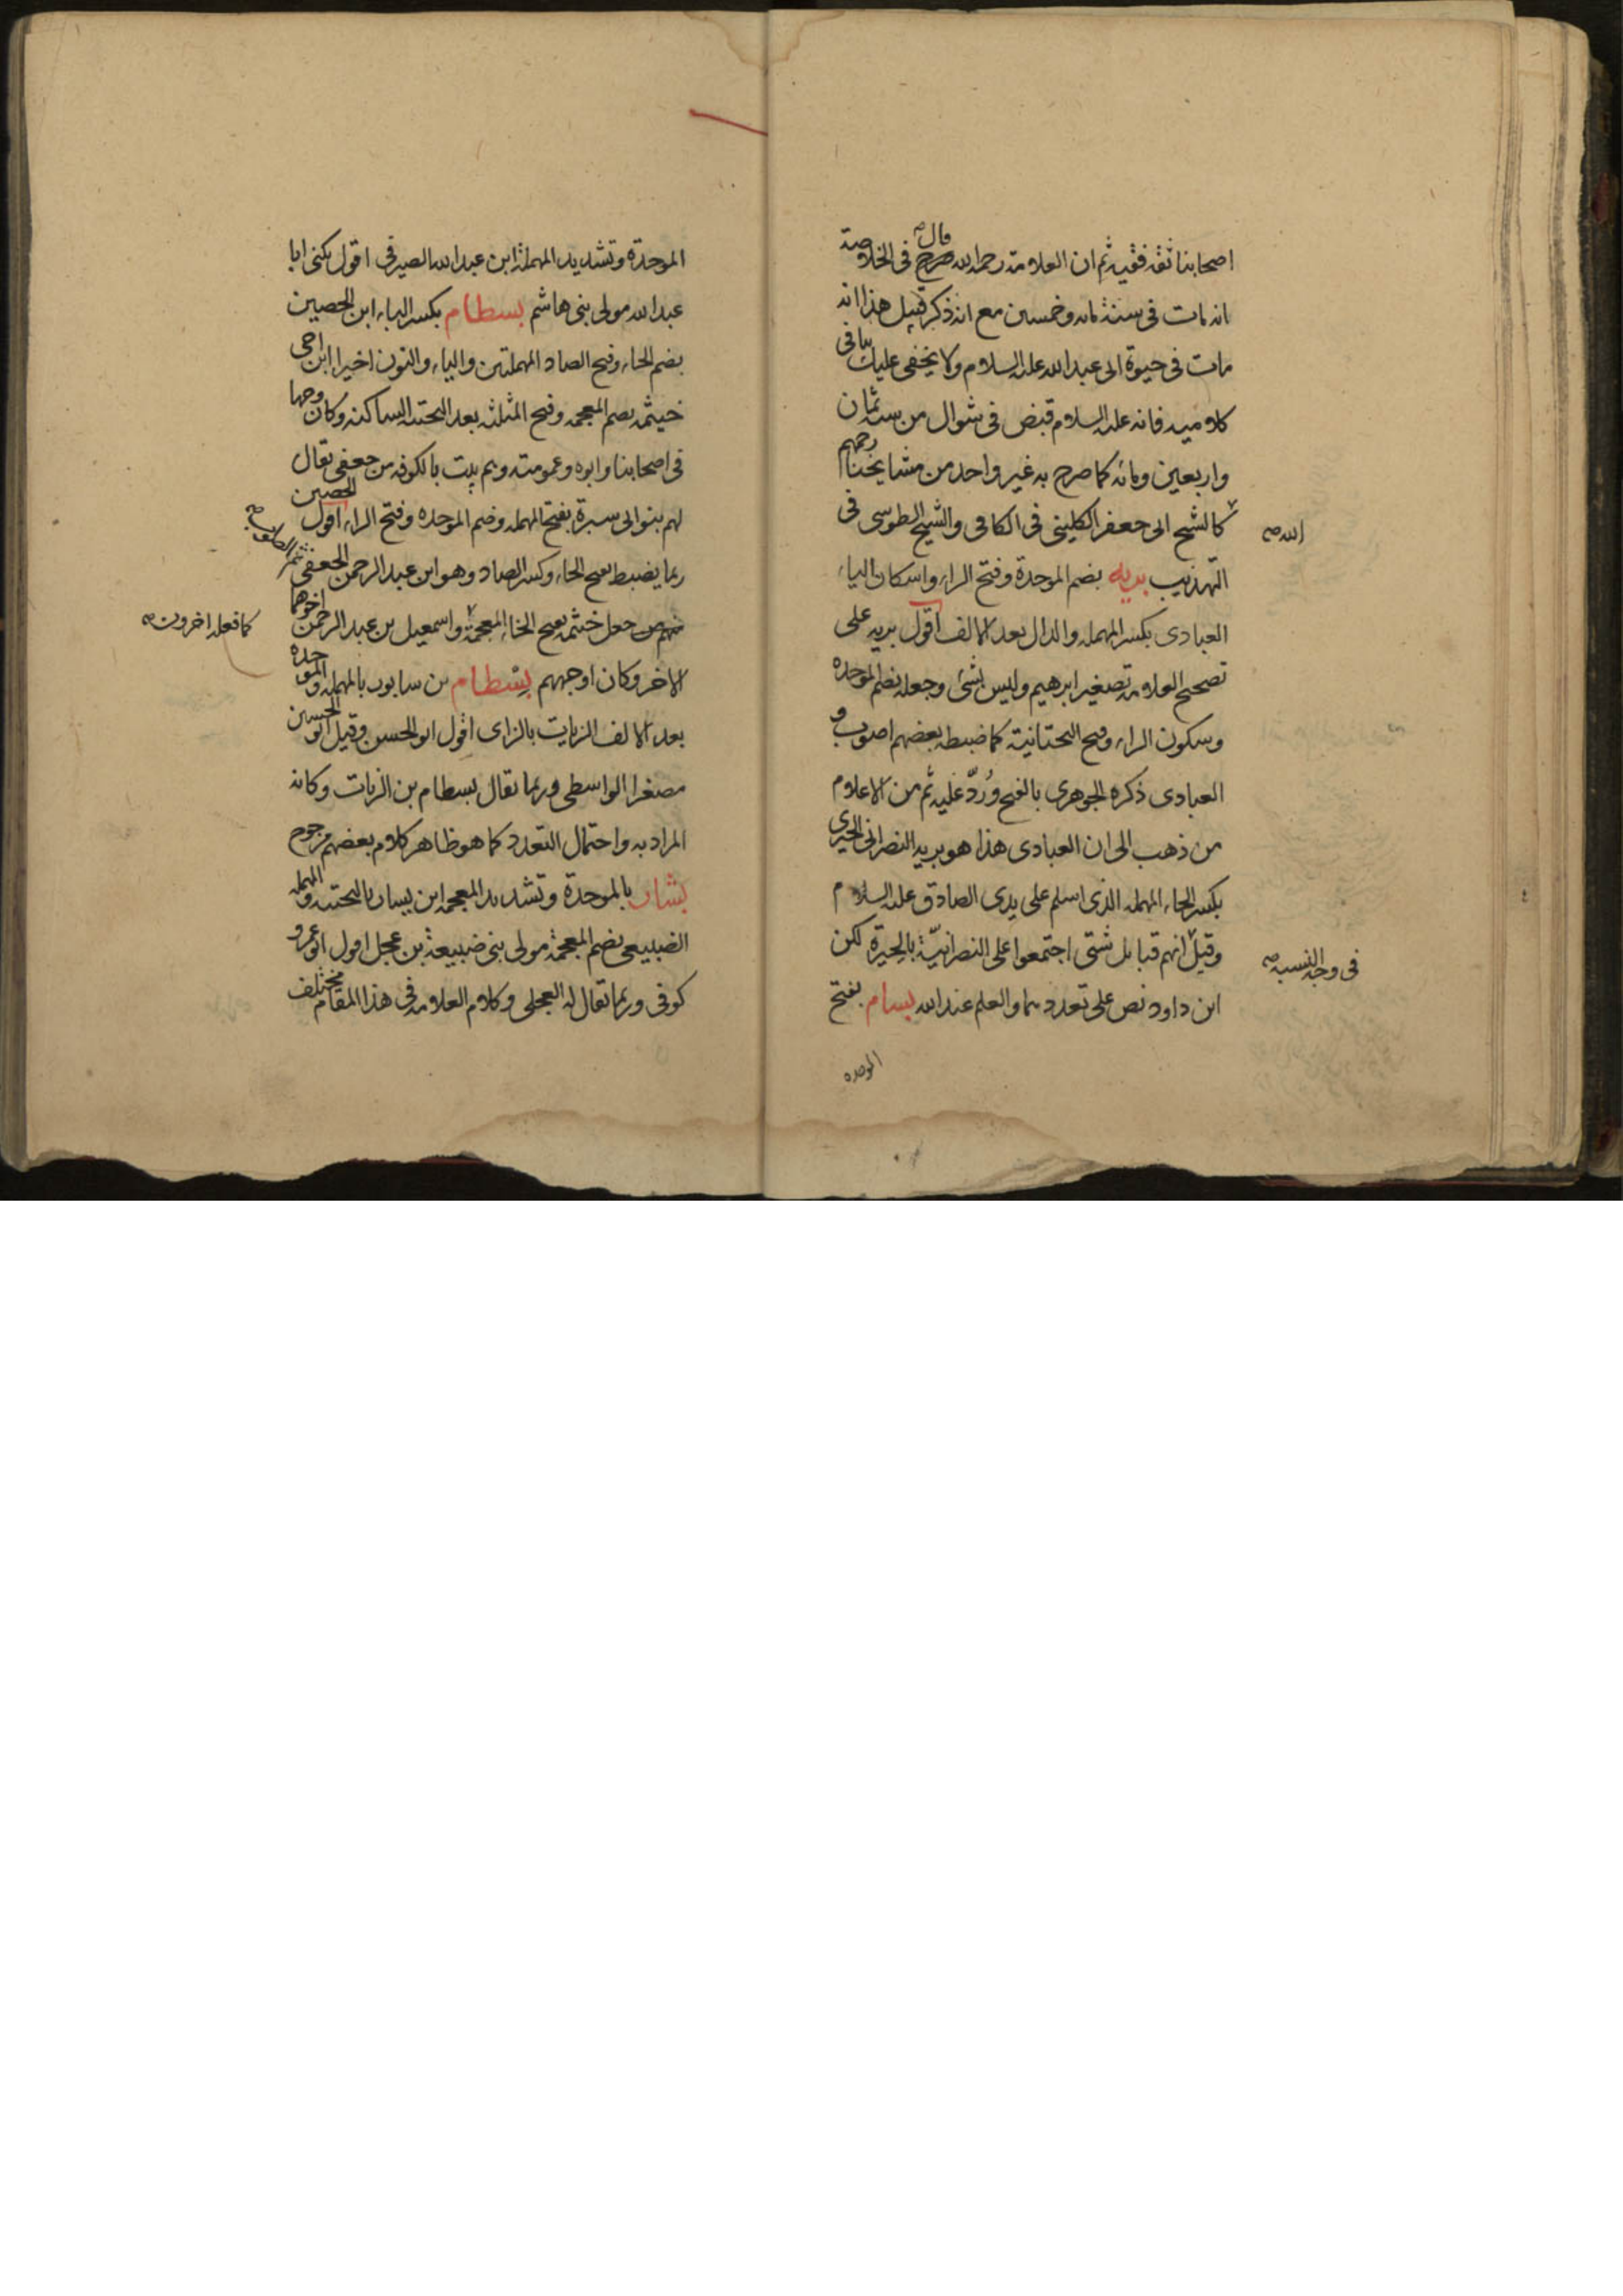 اصحابنا ثقة فقيه ثم ان العلامة رحمه الله صرح فى الخلاصة
قال
انه مات فى سنة مائه وخمسين مع انه ذكر قبيل هذا انه
مات فى حيوة ابى عبد الله عليه السلام ولا يخفى عليك تنافى
كلاميه فانه عليه السلام قبض فى شوال من سنه ثمان
واربعين ومائه كما صرح به غير واحد من مشايخنا رحمهم
الله
كالشيخ ابى جعفر الكلينى فى الكافى والشيخ الطوسى فى
التهذيب بريه بضم الموحدة وفتح الراء واسكان الياء
العبادى بكسر المهمله والدال بعد الالف اقول بريه على
تصحيح العلامه تصغير ابرهيم وليس بشئ وجعله بضم الموحده
وسكون الراء وفتح التحتانية كما ضبطه بعضهم اصوب و
العبادى ذكره الجوهرى بالفتح ورُدَّ عليه ثم من الاعلام
من ذهب الى ان العبادى هذا هو بريه النصرانى الحيرى
بكسر الحاء المهمله الذى اسلم على يدى الصادق عليه السلام
وقيل انهم قبايل شتى اجتمعوا على النصرانيّة بالحيرة لكن
فى وجه النسبه
ابن داود نص على تعددهما والعلم عند الله بسام بفتح
الموحده
الموحدة وتشديد المهملة ابن عبد الله الصيرفى اقول يكنى ابا
عبد الله مولى بنى هاشم بسطام بكسر الباء ابن الحصين
بضم الحاء وفتح الصاد المهملتين والياء والنون اخيرا ابن اخى
خيثمه بضم المعجمه وفتح المثلثه بعد التحتيه الساكنه وكان وجها
فى اصحابنا وابوه وعمومته وهم بيت بالكوفه من جعفى يقال
لهم بنو ابى سبرة بفتح المهمله وضم الموحده وفتح الراء اقول الحصين
ربما يضبط بفتح الحاء وكسر الصاد وهو ابن عبد الرحمن الجعفى
منهم من جعل خيثمه بفتح الخاء المعجمة واسمعيل بن عبد الرحمن اخوهما
كما فعله اخرون
الاخر وكان اوجههم بسطام بن سابور بالمهمله والموحده
بعد الالف الزيات بالزاى اقول ابو الحسن وقيل ابو الحسين
مصغرا الواسطى وربما يقال بسطام بن الزيات وكانه
المراد به واحتمال التعدد كما هو ظاهر كلام بعضهم مرجوح
بشار بالموحدة وتشديد المعجمه ابن يسار بالتحتيه والمهمله
الضبيعى بضم المعجمة مولى بنى ضبيعة بن عجل اقول ابو عمرو
كوفى وربما يقال له العجلى وكلام العلامه فى هذا المقام مختلف